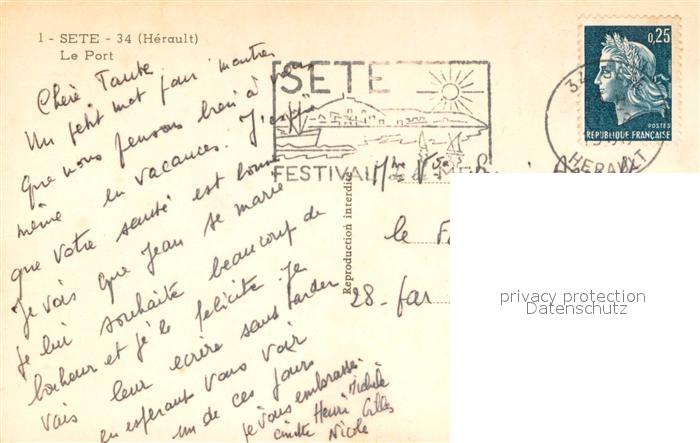 1 - SETE - 34 (Hérault)
Le Port
Chère Tante
Un petit mot pour montrer
que nous pensons bien à vous
même en vacances. J'espère
que votre santé est bonne
Je vois que Jean se marie
Je lui souhaite beaucoup de
bonheur et je le félicite. Je
vais leur écrire sans tarder
en espérant vous voir
un de ces jours
je vous embrasse
Michèle
Henri Gilles
Nicole
SETE
FESTIVAL MER
0,25
POSTES
REPUBLIQUE FRANÇAISE
34
HERAULT
Reproduction interdite
Mme Vve
le
28 -
privacy protection
Datenschutz